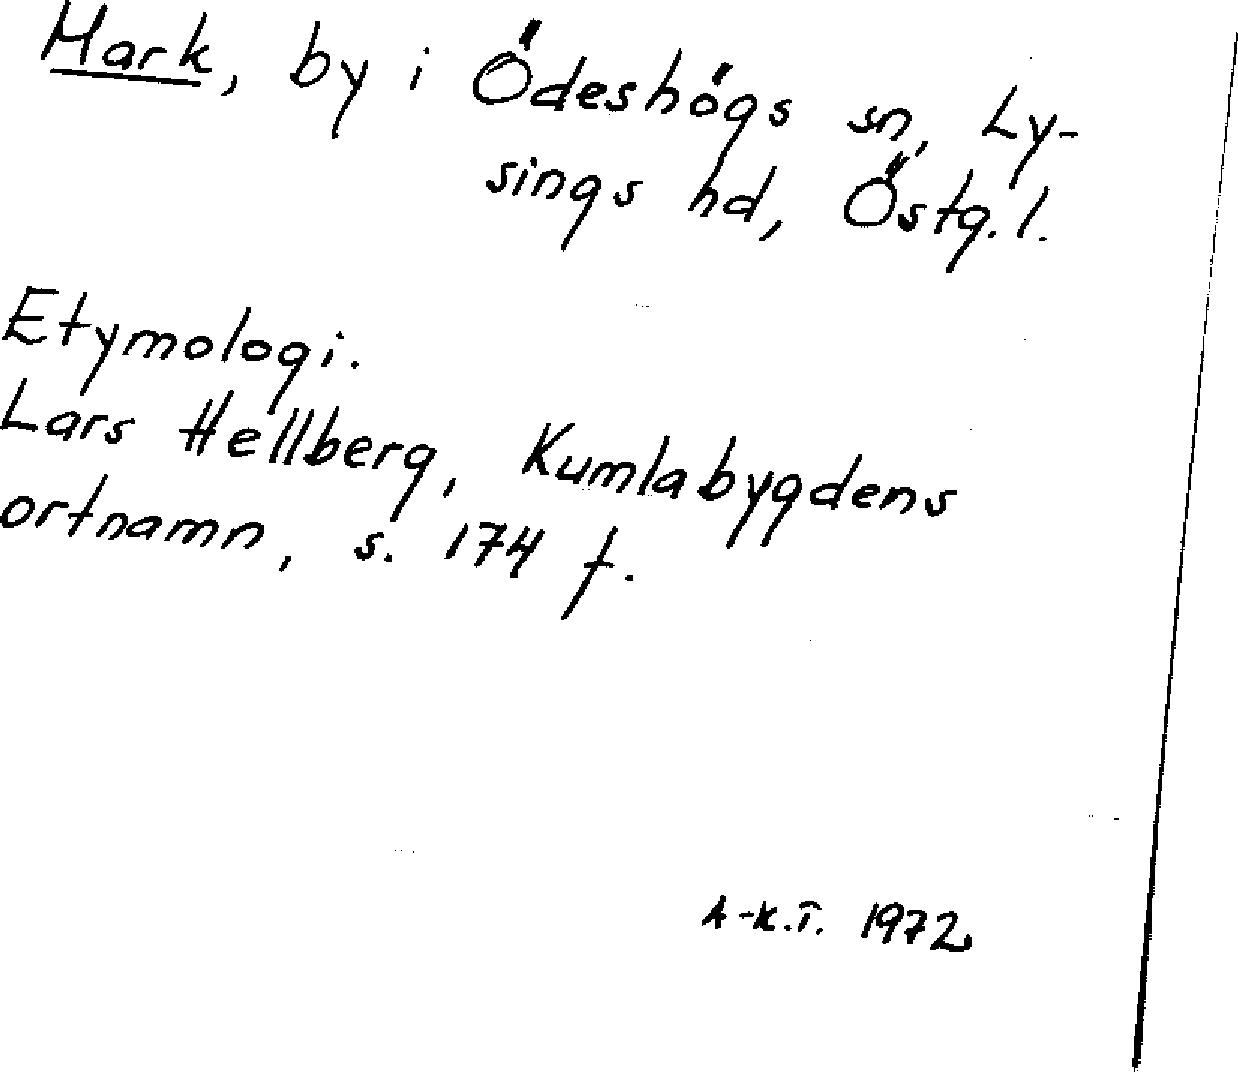 Mark, by i Ödeshögs sn, Ly-
sings hd, Östg.l.
Etymologi.
Lars Hellberg, Kumlabygdens
ortnamn, s. 174 f.
A-K.T. 1972